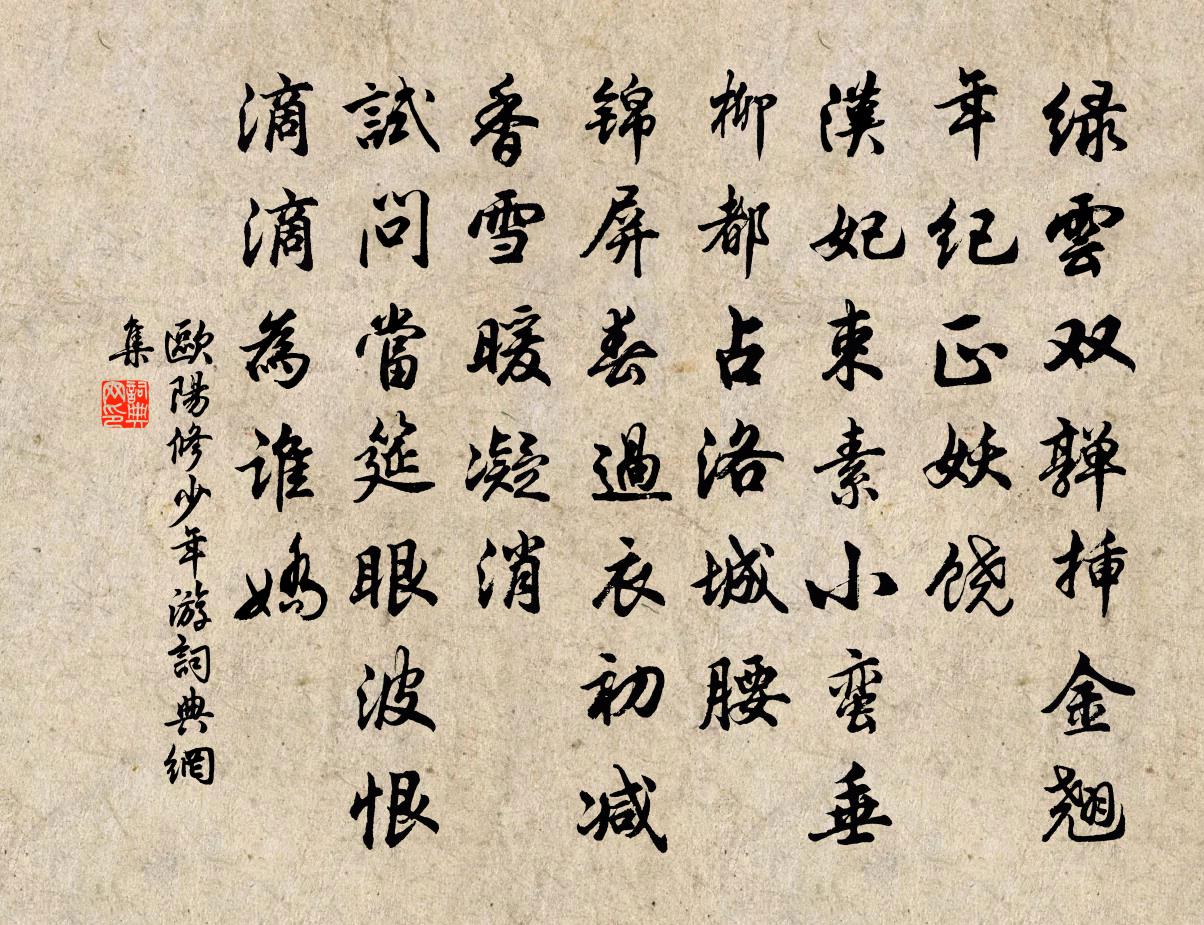 绿雲双嚲挿金翘
年纪正妖饶
漢妃束素小蛮垂
柳都占洛城腰
锦屏春過衣初减
香雪暖凝消
試問當筵眼波恨
滴滴為谁嬌
歐陽修少年游詞典網
集
詞典
网印